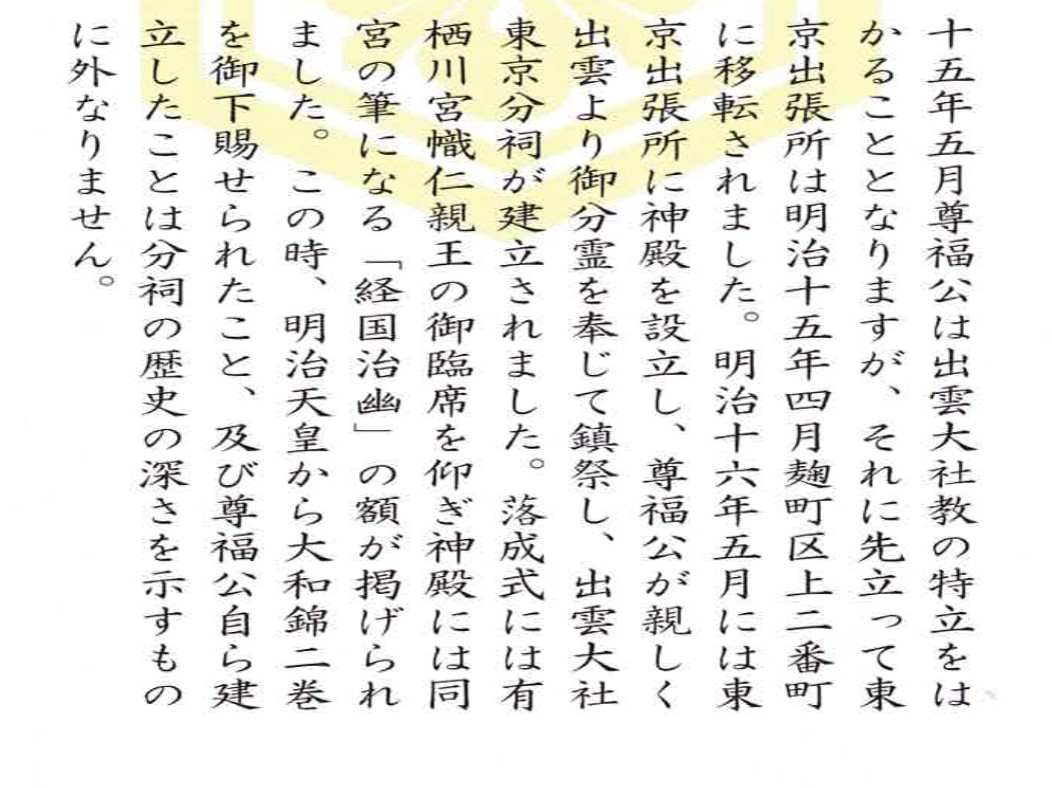 十五年五月尊福公は出雲大社教の特立をは
かることとなりますが、それに先立って東
京出張所は明治十五年四月麹町区上二番町
に移転されました。明治十六年五月には東
京出張所に神殿を設立し、尊福公が親しく
出雲より御分霊を奉じて鎮祭し、出雲大社
東京分祠が建立されました。落成式には有
栖川宮幟仁親王の御臨席を仰ぎ神殿には同
宮の筆になる「経国治幽」の額が掲げられ
ました。この時、明治天皇から大和錦二巻
を御下賜せられたこと、及び尊福公自ら建
立したことは分祠の歴史の深さを示すもの
に外なりません。